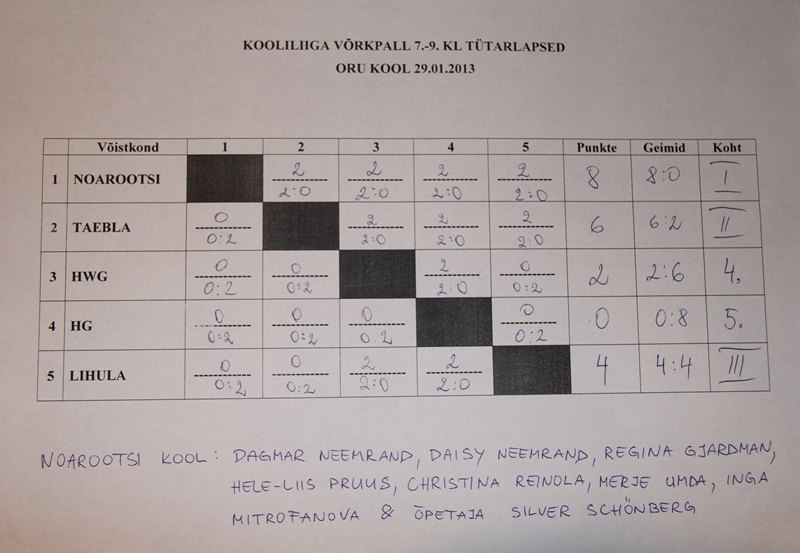 KOOLILIIGA VÕRKPALL 7.-9. KL TÜTARLAPSED
ORU KOOL 29.01.2013
Võistkond 1 2 3 4 5 Punkte Geimid Koht
1 NOAROOTSI 2 2:0 2 2:0 2 2:0 2 2:0 8 8:0 I
2 TAEBLA 0 0:2 2 2:0 2 2:0 2 2:0 6 6:2 II
3 HWG 0 0:2 0 0:2 2 2:0 0 0:2 2 2:6 4.
4 HG 0 0:2 0 0:2 0 0:2 0 0:2 0 0:8 5.
5 LIHULA 0 0:2 0 0:2 2 2:0 2 2:0 4 4:4 III
NOAROOTSI KOOL: DAGMAR NEEMRAND, DAISY NEEMRAND, REGINA GJARDMAN,
HELE-LIIS PRUUS, CHRISTINA REINOLA, MERJE UMDA, INGA
MITROFANOVA & ÕPETAJA SILVER SCHÖNBERG